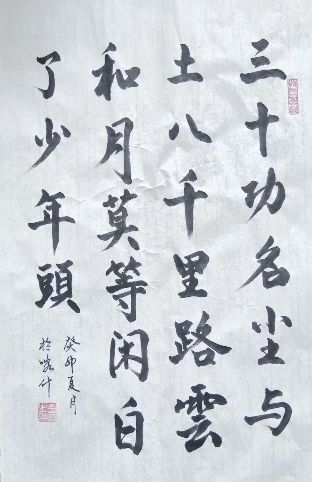 三十功名尘与
土八千里路雲
和月莫等闲白
了少年頭
癸卯夏月
於喀什